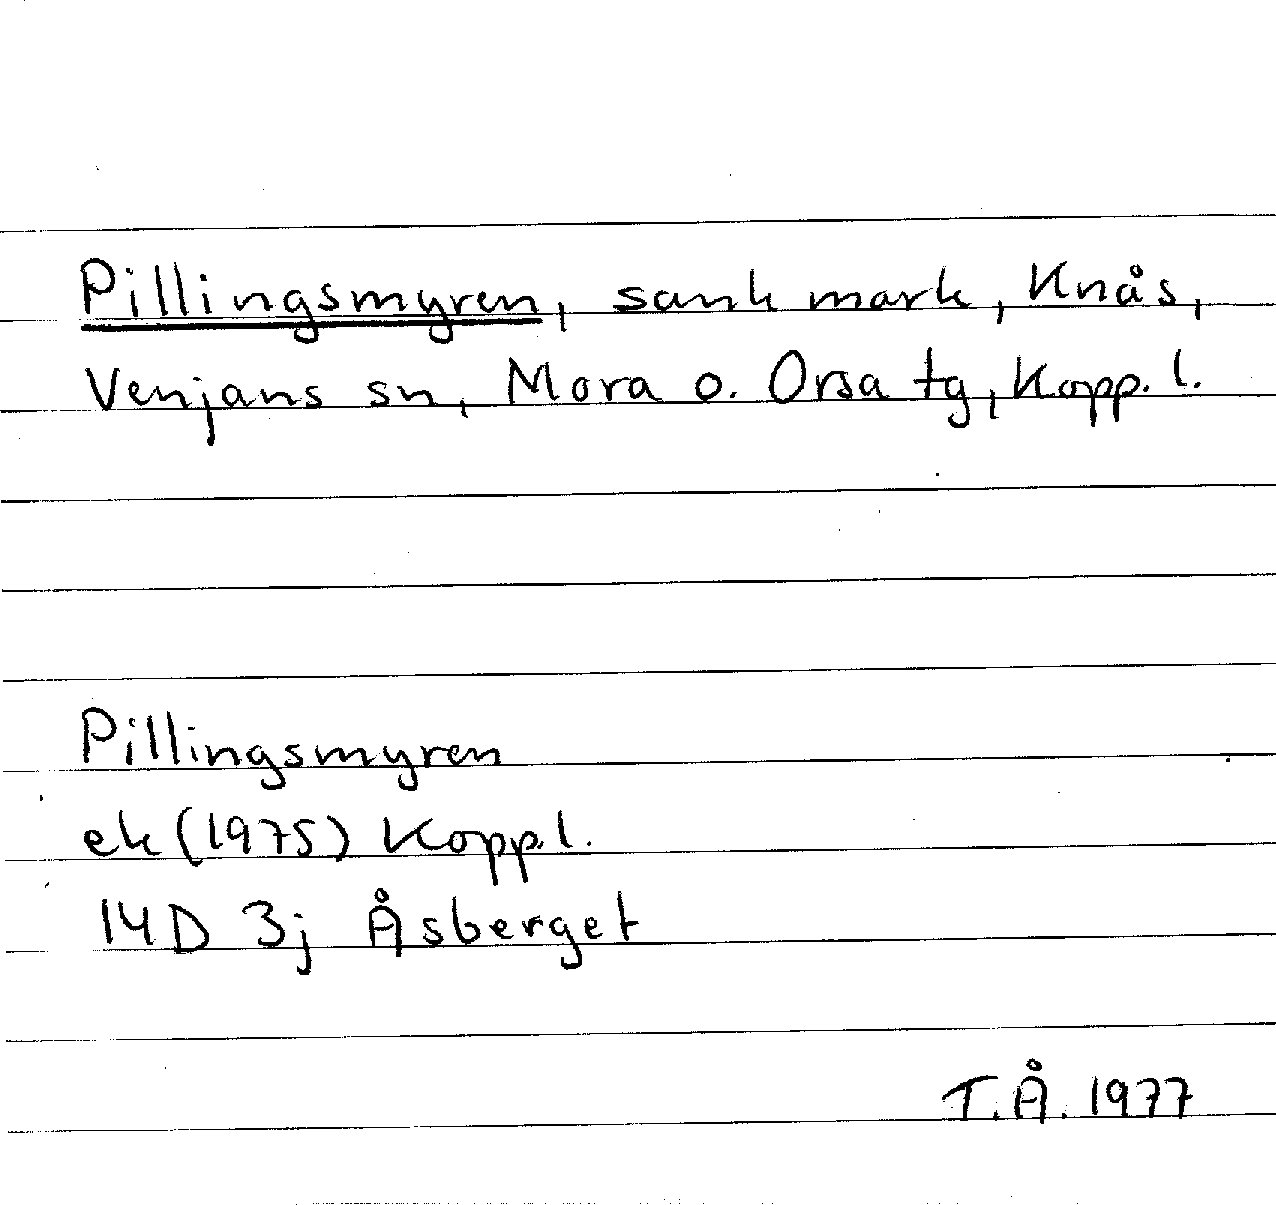 Pillingsmyren, sank mark, Knås,
Venjans sn, Mora o. Orsa tg, Kopp. l.
Pillingsmyren
ek (1975) Kopp.l.
14D 3j Åsberget
T.Å. 1977